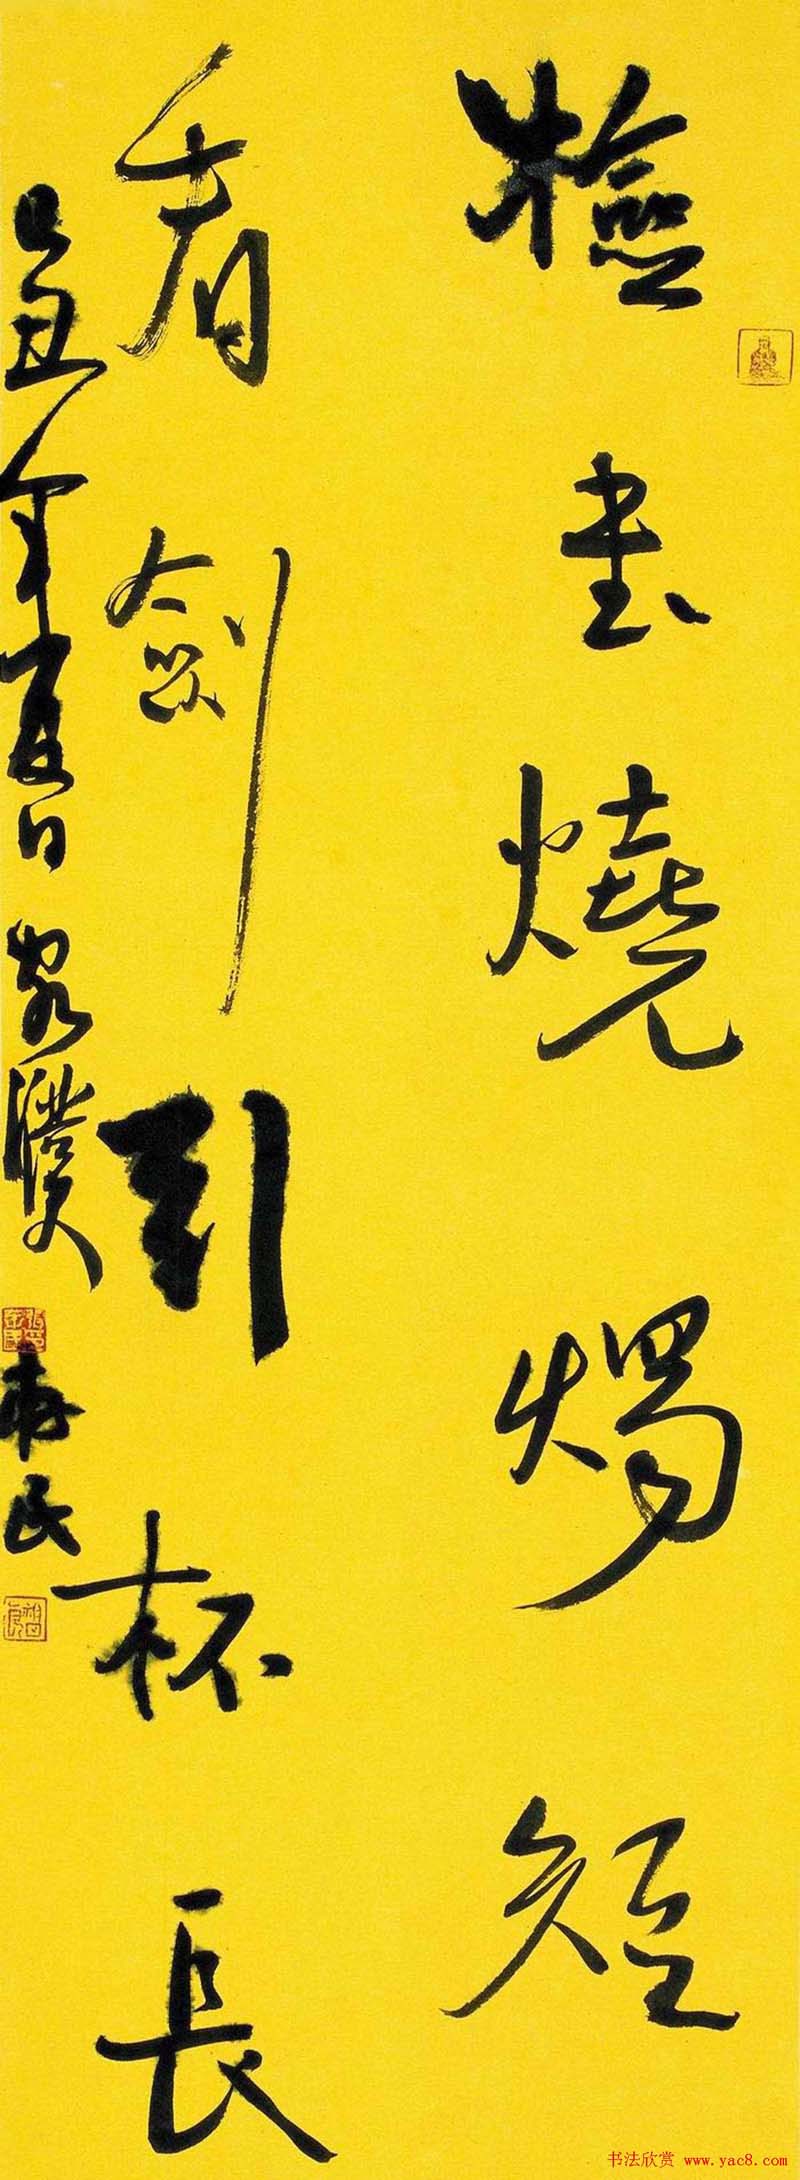 檢書燒燭短
看劍引杯長
己丑年夏日
寿民
书法欣赏 www.yac8.com